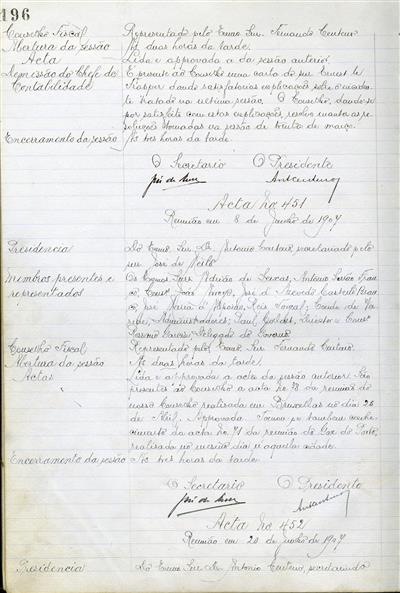 196
Conselho Fiscal Representado pelo Exmo. Snr. Fernando Centeno
Abertura da sessão Ás duas horas da tarde.
Acta Lida e approvada a da sessão anterior.
Demissão do Chefe de É presente ao Conselho uma carta do snr Ernest
Contabilidade dando satisfatorias explicações sobre o incidente
tratado na ultima sessão. O Conselho, dando-se
por satisfeito com estas explicações, resolve manter as re-
soluções tomadas na sessão de trinta de março.
Encerramento da sessão Ás tres horas da tarde.
O Secretario O Presidente
Acta No. 451
Reunião em 8 de Junho de 1907
Presidencia Do Exmo. Snr. Dr. Antonio Centeno, secretariado pelo
snr. José de Mello
Membros presentes e Os Exmos. Snrs. Adrião de Seixas, Antonio Serrão Fran
representados co, Consro. João Arroyo, José d'Azevedo Castello Bran
co, José Maria d'
Administradores; Paul Gelders, Director e Consro.
Delegado do Governo
Conselho Fiscal Representado pelo Exmo. Snr. Fernando Centeno.
Abertura da sessão Ás duas horas da tarde.
Actas Lida e approvada a acta da sessão anterior. Foi
presente ao Conselho a acta no. 78 da reunião do
nosso Conselho, realisada em Bruxellas no dia 26
de Abril. Approvada. Tomou-se tambem conhe-
cimento da acta no. 71 da reunião do Gaz do Porto,
realisada no mesmo dia n'aquella cidade.
Encerramento da sessão Ás tres horas da tarde.
O Secretario O Presidente
Acta No. 452
Reunião em 20 de Junho de 1907
Presidencia Do Exmo. Snr. Dr. Antonio Centeno, secretariado